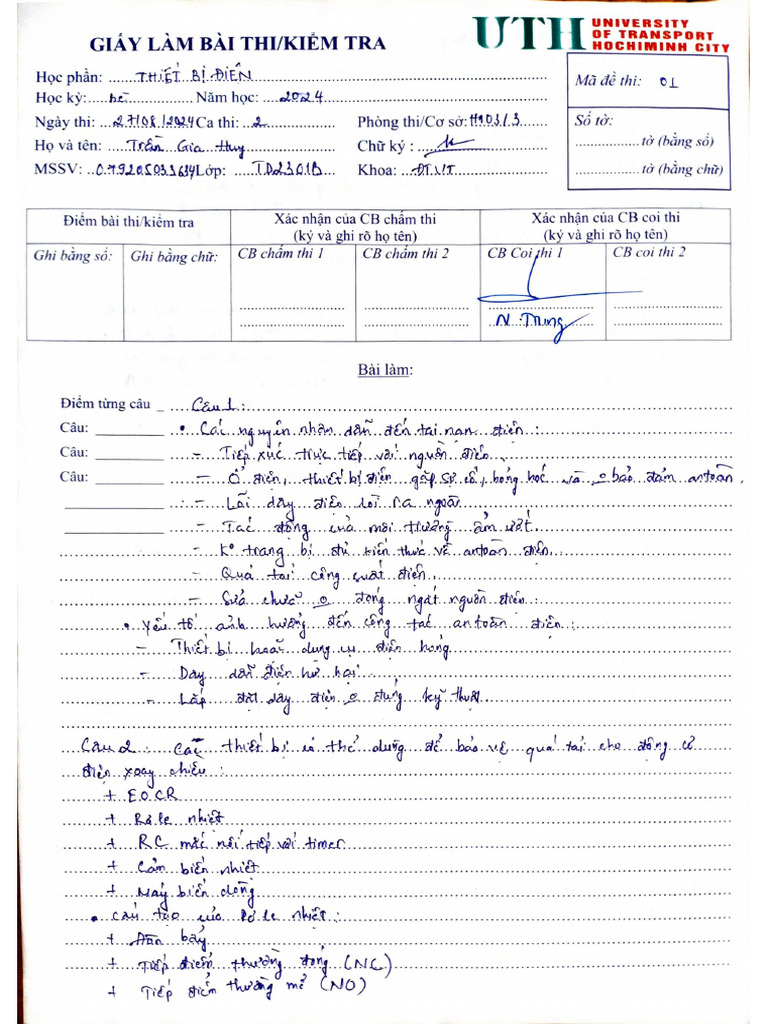 GIẤY LÀM BÀI THI/KIỂM TRA
UTH UNIVERSITY OF TRANSPORT HOCHIMINH CITY
Học phần: THIẾT BỊ ĐIỆN
Học kỳ: hè Năm học: 2024
Ngày thi: 27/08/2024 Ca thi: 2 Phòng thi/Cơ sở:
Họ và tên: Trần Gia Huy Chữ ký :
MSSV: 079205033634 Lớp: TD2301B Khoa: ĐT.VT
Mã đề thi: 01
Số tờ:
tờ (bằng số)
tờ (bằng chữ)
Điểm bài thi/kiểm tra
Xác nhận của CB chấm thi
(ký và ghi rõ họ tên)
Xác nhận của CB coi thi
(ký và ghi rõ họ tên)
Ghi bằng số: Ghi bằng chữ: CB chấm thi 1 CB chấm thi 2 CB Coi thi 1 CB coi thi 2
N. Trung
Bài làm:
Điểm từng câu Câu 1:
Câu: • Các nguyên nhân dẫn đến tai nạn điện:
Câu: - Tiếp xúc trực tiếp với nguồn điện.
Câu: - Ổ điện, thiết bị điện gặp sự cố, hỏng học và o bảo đảm an toàn.
- Lõi dây điện lòi ra ngoài
- Tác động của môi trường ẩm ướt.
- K° trang bị đủ kiến thức về an toàn điện.
- Quá tải công suất điện.
- Sửa chữa o đóng ngắt nguồn điện.
• Yếu tố ảnh hưởng đến công tác an toàn điện:
- Thiết bị hoặc dụng cụ điện hỏng
- Dây dẫn điện hư hại.
- Lắp đặt dây điện o đúng kỹ thuật
Câu 2: Các thiết bị có thể dùng để bảo vệ quá tải cho động cơ
điện xoay chiều:
+ EOCR
+ Rơ le nhiệt
+ RC mắc nối tiếp với timer
+ Cảm biến nhiệt
+ Máy biến dòng
• Cấu tạo của rơ le nhiệt:
+ Đòn bẩy
+ Tiếp điểm thường đóng (NC)
+ Tiếp điểm thường mở (NO)